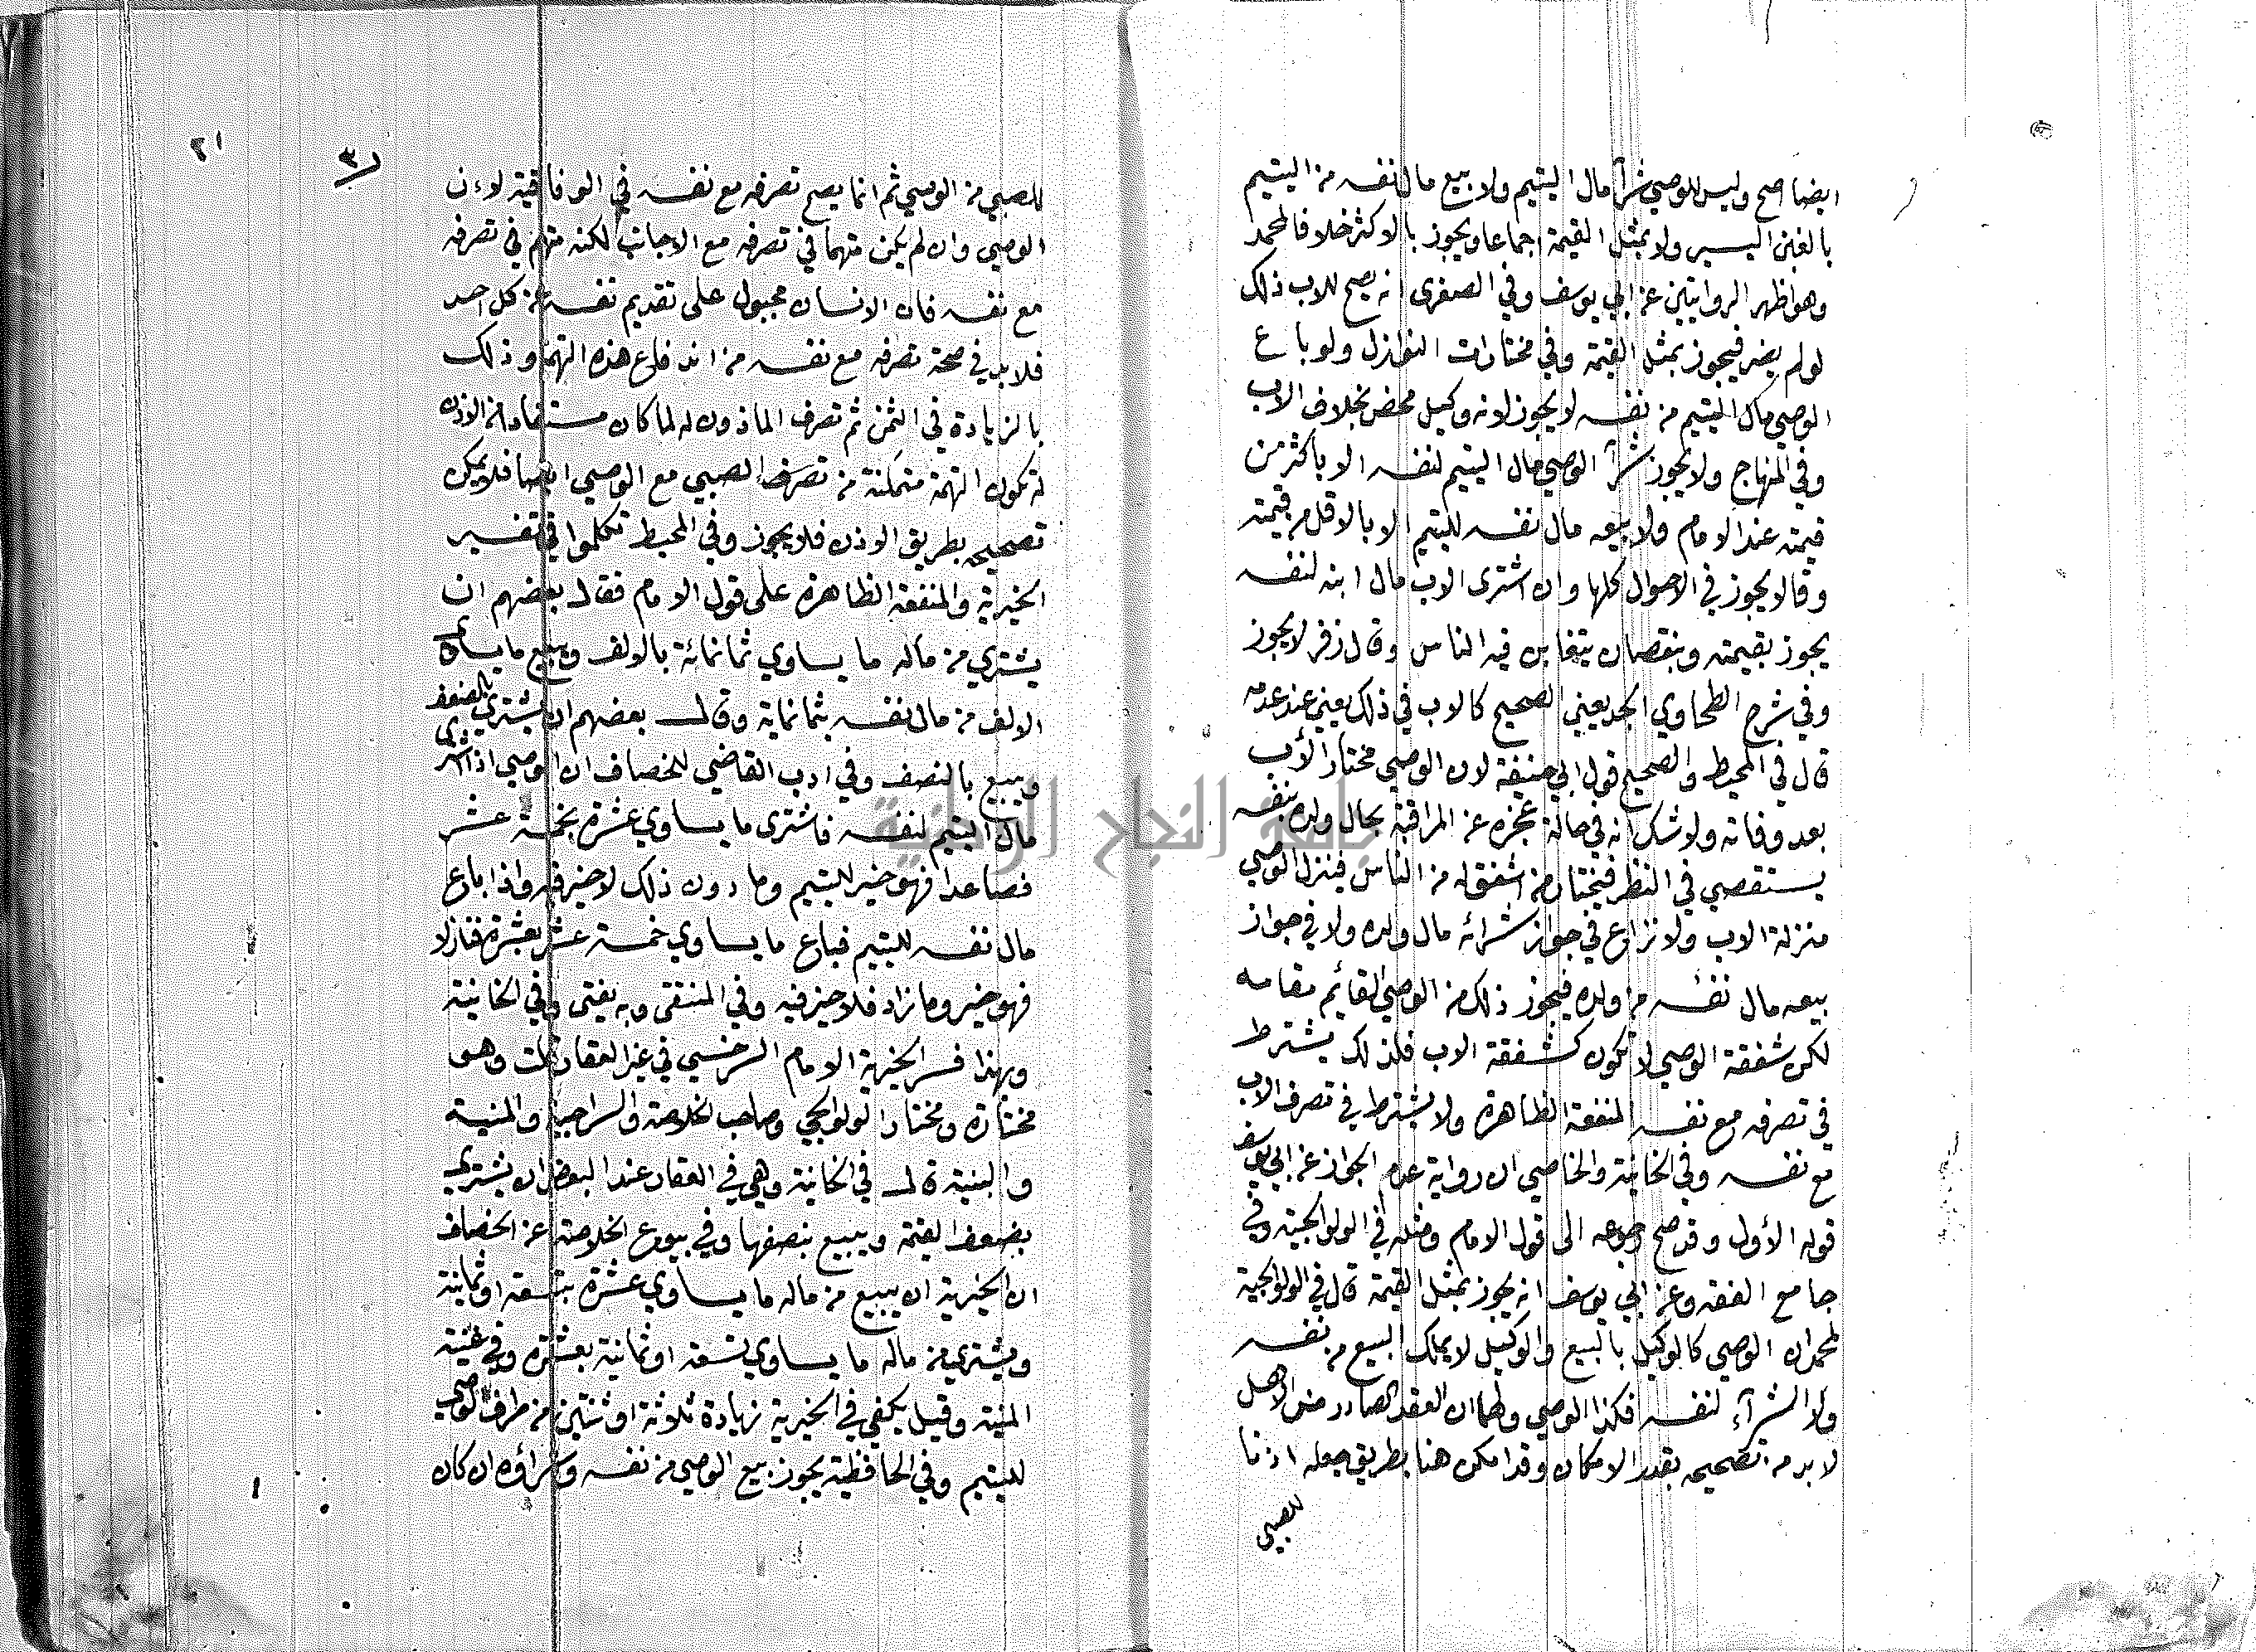 ايضا صح وليس للوصي شرآ مال اليتيم ولا بيع مال نفسه من اليتيم
بالغبن اليسير ولا بمثل القيمة اجماعا ويجوز بالاكثر خلافا لمحمد
وهو اظهر الروايتين عن ابي يوسف وفي الصغرى انه يصح للاب ذلك
لو لم يضر فيجوز بمثل القيمة وفي مختارات النوازل ولو باع
الوصي مال اليتيم من نفسه لا يجوز لانه وكيل محض بخلاف الاب
وفي المنهاج ولا يجوز شرآ الوصي مال اليتيم لنفسه الا باكثر من
قيمته عند الامام ولا بيعه مال نفسه لليتيم الا بالاقل من قيمته
وقالا يجوز في الاحوال كلها وان اشترى الاب مال ابنه لنفسه
يجوز بقيمته وبنقصان يتغابن فيه الناس وقال زفر لا يجوز
وفي شرح الطحاوي الجد يعني الصحيح كالاب في ذلك يعني عند عدمه
قال في المحيط والصحيح قول ابي حنيفة لان الوصي مختار الأب
بعد وفاته ولا شك انه في حالة عجزه عن المراقبة بحال ولده بنفسه
يستقصي في النظر فيختار من اشفق له من الناس فينزل الوصي
منزلة الاب ولا نزاع في جواز شرائه مال ولده ولا في جواز
بيعه مال نفسه من ولده فيجوز ذلك من الوصي القائم مقامه
لكن شفقة الوصي لا تكون كشفقة الاب فلذلك يشترط
في تصرفه مع نفسه المنفعة الظاهرة ولا يشترط في تصرف الاب
مع نفسه وفي الخانية والخاصي ان رواية عدم الجواز عن ابي يوسف
قوله الأول وقد صح رجوعه الى قول الامام ومثله في الولوالجية وفي
جامع الفقه وعن ابي يوسف انه يجوز بمثل القيمة قال في الولوالجية
لمحمد ان الوصي كالوكيل بالبيع والوكيل لا يملك البيع من نفسه
ولا الشرآء لنفسه فكذا الوصي ولهما ان العقد الصادر من الاهل
لا بد من تصحيحه بقدر الامكان وقد امكن هنا بطريق جعله اذنا
للصبي
٢١
٣
للصبي من الوصي ثم انما يصح تصرفه مع نفسه في الوفاقية لاءن
الوصي وان لم يكن متهما في تصرفه مع الاجانب لكنه متهم في تصرفه
مع نفسه فان الانسان مجبول على تقديم نفسه عن كل احد
فلا بد في صحة تصرفه مع نفسه من اندفاع هذه التهمة وذلك
بالزيادة في الثمن ثم تصرف الماذون له لما كان مستفادا من الاذن
له تكون التهمة متمكنة من تصرف الصبي مع الوصي ايضا فلا يمكن
تصحيحه بطريق الاذن فلا يجوز وفي المحيط تكلموا في تفسير
الخيرية والمنفعة الظاهرة على قول الامام فقال بعضهم ان
يشتري من ماله ما يساوي ثمانمائة بالالف ويبيع ما يساوي
الالف من مال نفسه بثمانماية وقال بعضهم ان يشتري بالضعف
ويبيع بالنصف وفي ادب القاضي للخصاف ان الوصي اذا اشترى
مال اليتيم لنفسه فاشترى ما يساوي عشرة بخمسة عشر
فصاعدا فهو خير لليتيم وما دون ذلك لا خير فيه واذا باع
مال نفسه لليتيم فباع ما يساوي خمسة عشر بعشرة فنازلا
فهو خير وما زاد فلا خير فيه وفي المنتقى وبه يفتى وفي الخانية
وبهذا فسر الخيرية الامام السرخسي في غير العقار قلت وهو
مختاره ومختار الولوالجي وصاحب الخلاصة والسراجية والمنية
والبنية قال في الخانية وهي في العقار عند البعض ان يشتري
بضعف القيمة ويبيع بنصفها وفي بيوع الخلاصة عن الخصاف
ان الخيرية ان يبيع من ماله ما يساوي عشرة بتسعة او ثمانية
ويشتري من ماله ما يساوي تسعة او ثمانية بعشرة وفي غنية
المنية وقيل يكفي في الخيرية زيادة ثلاثة او ثنتين من طرف الوصي
لليتيم وفي الحافظية يجوز بيع الوصي من نفسه وشراؤه ان كان
جامعة النجاح الوطنية